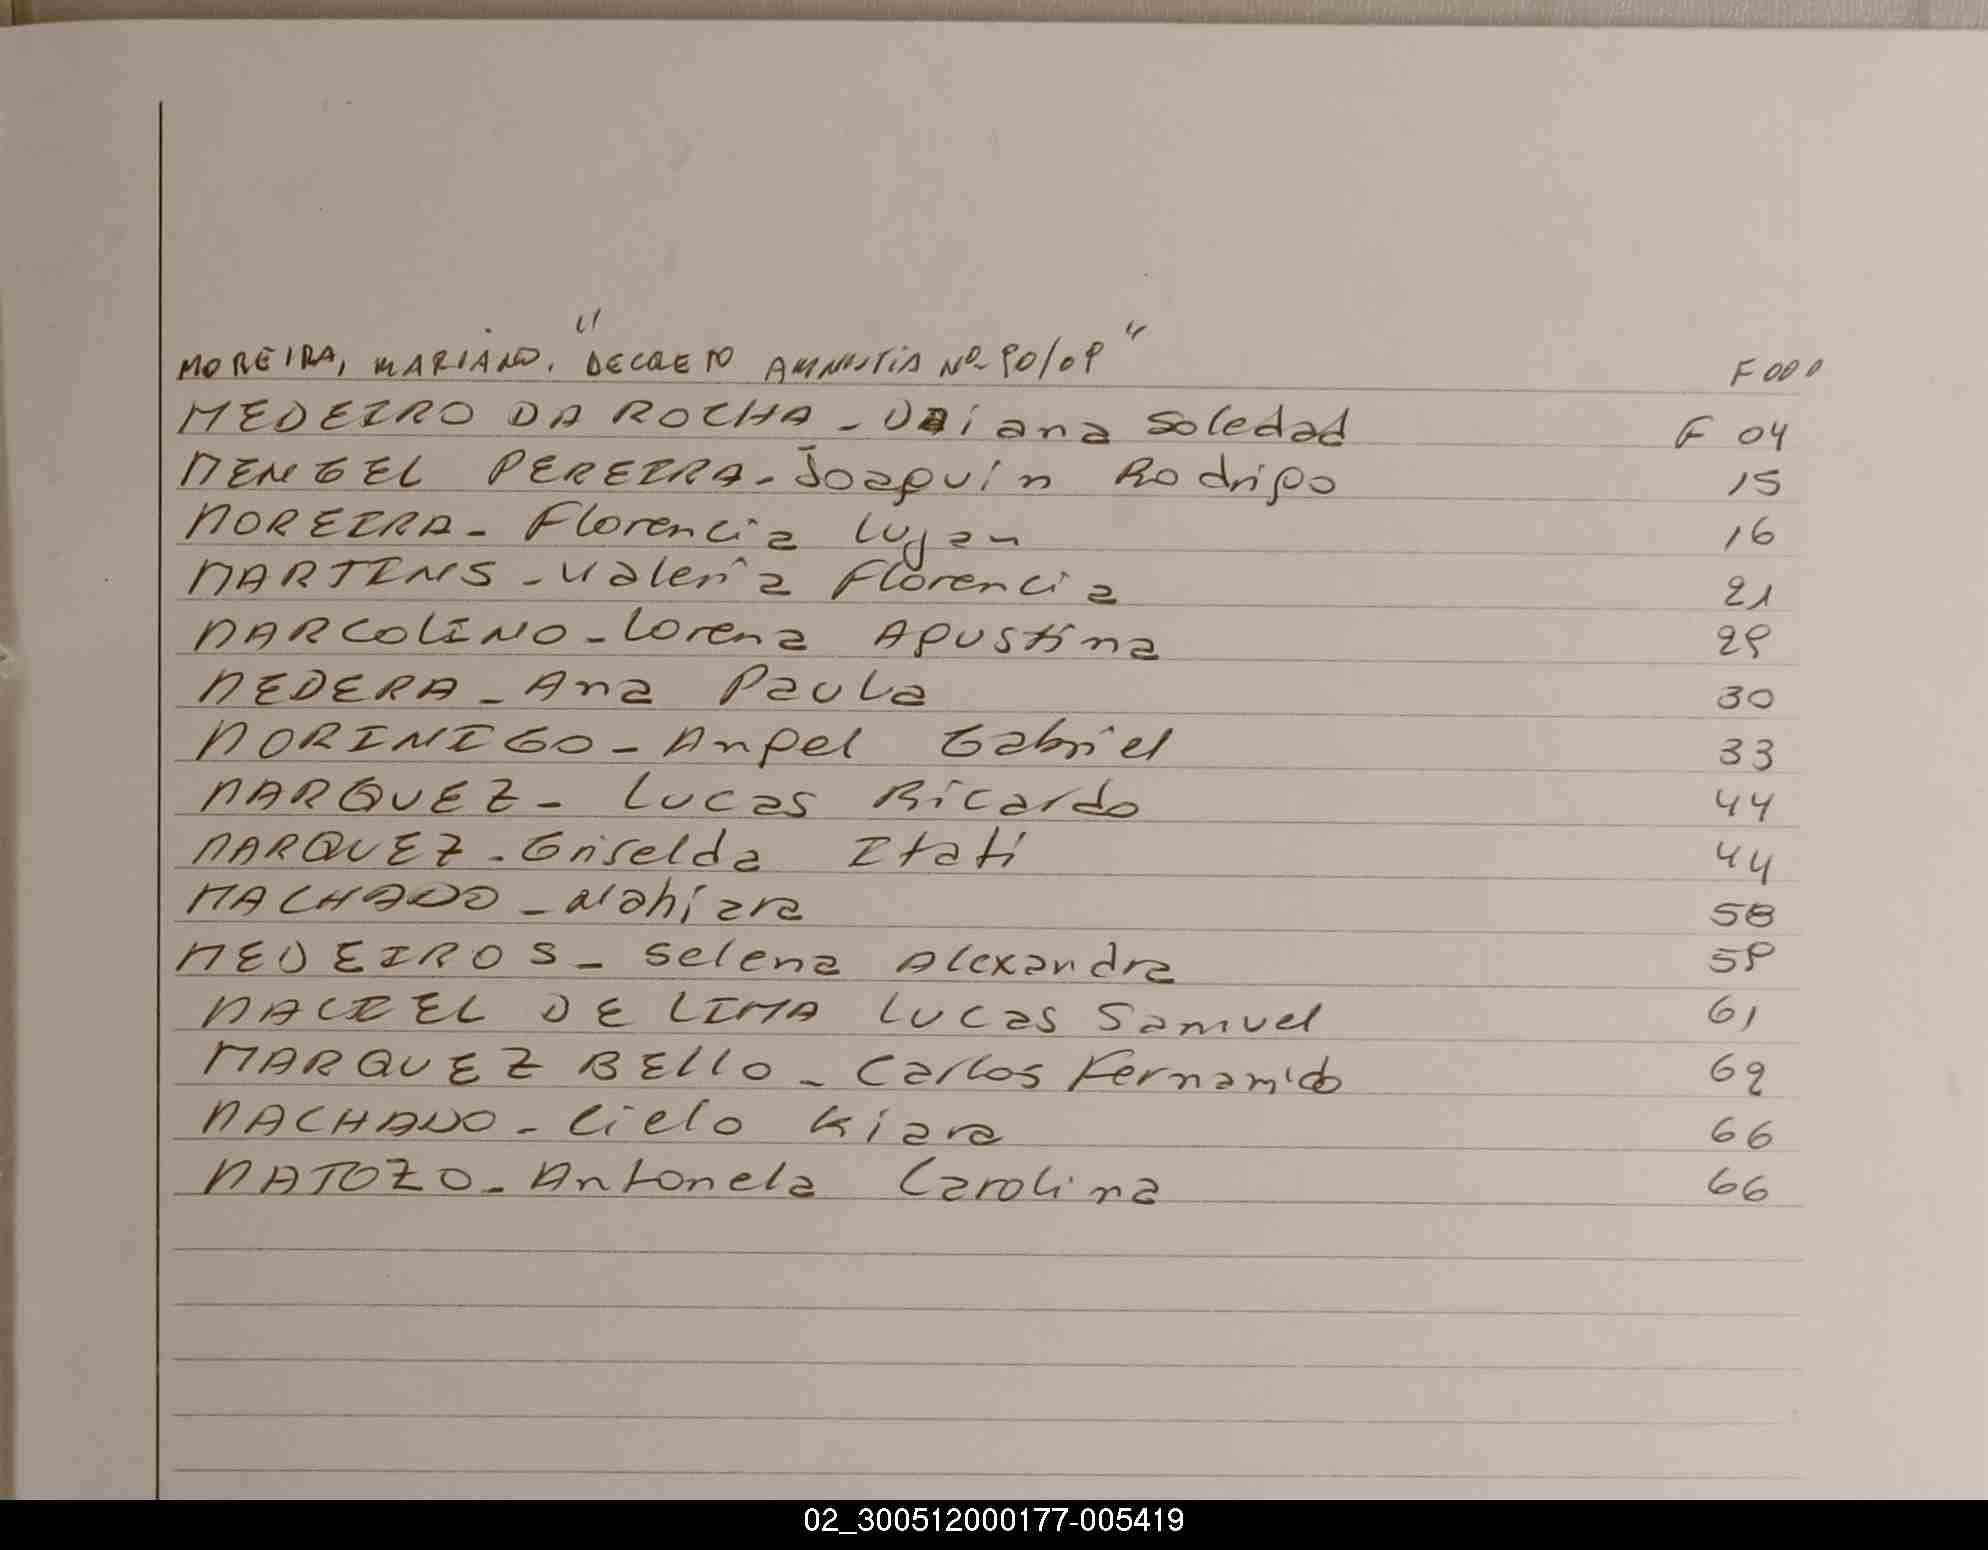 MOREIRA, MARIANO. "DECRETO AMNISTIA Nº 90/09" F 000
MEDEIRO DA ROCHA - Daiana Soledad F 04
MENGEL PEREIRA - Joaquín Rodrigo 15
MOREIRA - Florencia Lujan 16
MARTINS - Valeria Florencia 21
MARCOLINO - Lorena Agustina 29
MEDERA - Ana Paula 30
MORINIGO - Angel Gabriel 33
MARQUEZ - Lucas Ricardo 44
MARQUEZ - Griselda Itatí 44
MACHADO - Nahiara 58
MEDEIROS - Selena Alexandra 59
MACIEL DE LIMA Lucas Samuel 61
MARQUEZ BELLO - Carlos Fernando 62
MACHADO - Cielo Kiara 66
MATOZO - Antonela Carolina 66
02_300512000177-005419